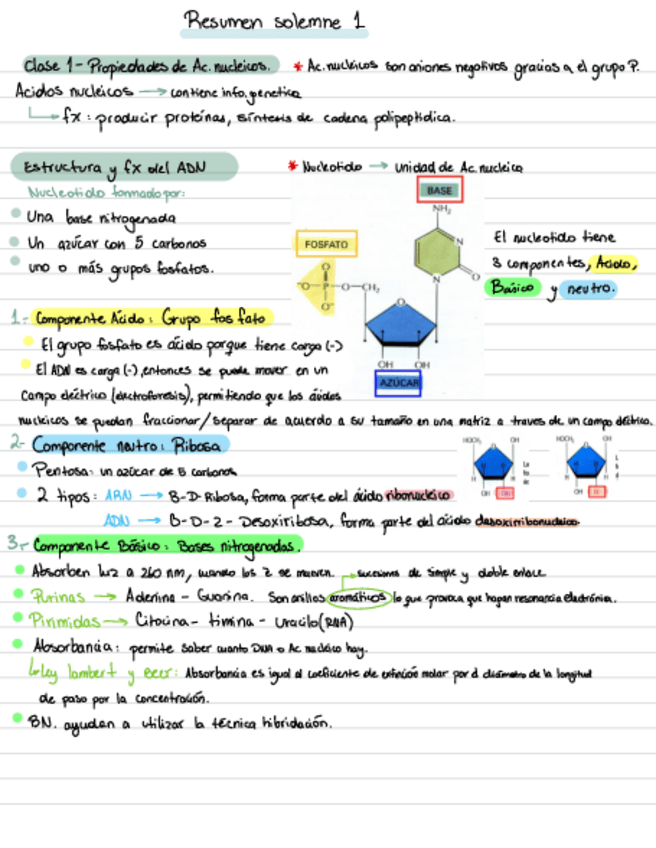 Resumen solemne 1
Clase 1 - Propiedades de Ac. nucleicos. * Ac. nucleicos son aniones negativos gracias a el grupo P.
Acidos nucleicos → contiene info. genetica
fx: producir proteínas, síntesis de cadena polipeptídica.
Estructura y fx del ADN * Nucleotido → unidad de Ac. nucleico
Nucleotido formado por:
Una base nitrogenada
Un azúcar con 5 carbonos
uno o más grupos fosfatos.
BASE
NH₂
N
N
O
FOSFATO
O
⁻O-P-O-CH₂
O⁻
O
OH OH
AZÚCAR
El nucleotido tiene
3 componentes, Acido,
Básico y neutro.
1- Componente Ácido: Grupo fosfato
El grupo fosfato es ácido porque tiene carga (-)
El ADN es carga (-), entonces se puede mover en un
campo eléctrico (electroforesis), permitiendo que los ácidos
nucleicos se puedan fraccionar/separar de acuerdo a su tamaño en una matriz a traves de un campo eléctrico.
2- Componente neutro: Ribosa
Pentosa: un azúcar de 5 carbonos
2 tipos: ARN → B-D-Ribosa, forma parte del ácido ribonucleico
ADN → B-D-2-Desoxiribosa, forma parte del ácido desoxirribonucleico.
HOCH₂ OH
H H
OH OH
HOCH₂ OH
H H
OH H
3- Componente Básico: Bases nitrogenadas.
Absorben luz a 260 nm, cuando los e se mueven. → sucesiones de simple y doble enlace
Purinas → Adenina - Guanina. Son anillos aromáticos lo que provoca que hagan resonancia electrónica.
Pirimidas → Citocina - timina - uracilo (RNA)
Absorbancia: permite saber cuanto DNA o Ac nucleico hay.
Ley lambert y beer: Absorbancia es igual al coeficiente de extinción molar por el diámetro de la longitud
de paso por la concentración.
BN. ayudan a utilizar la técnica hibridación.